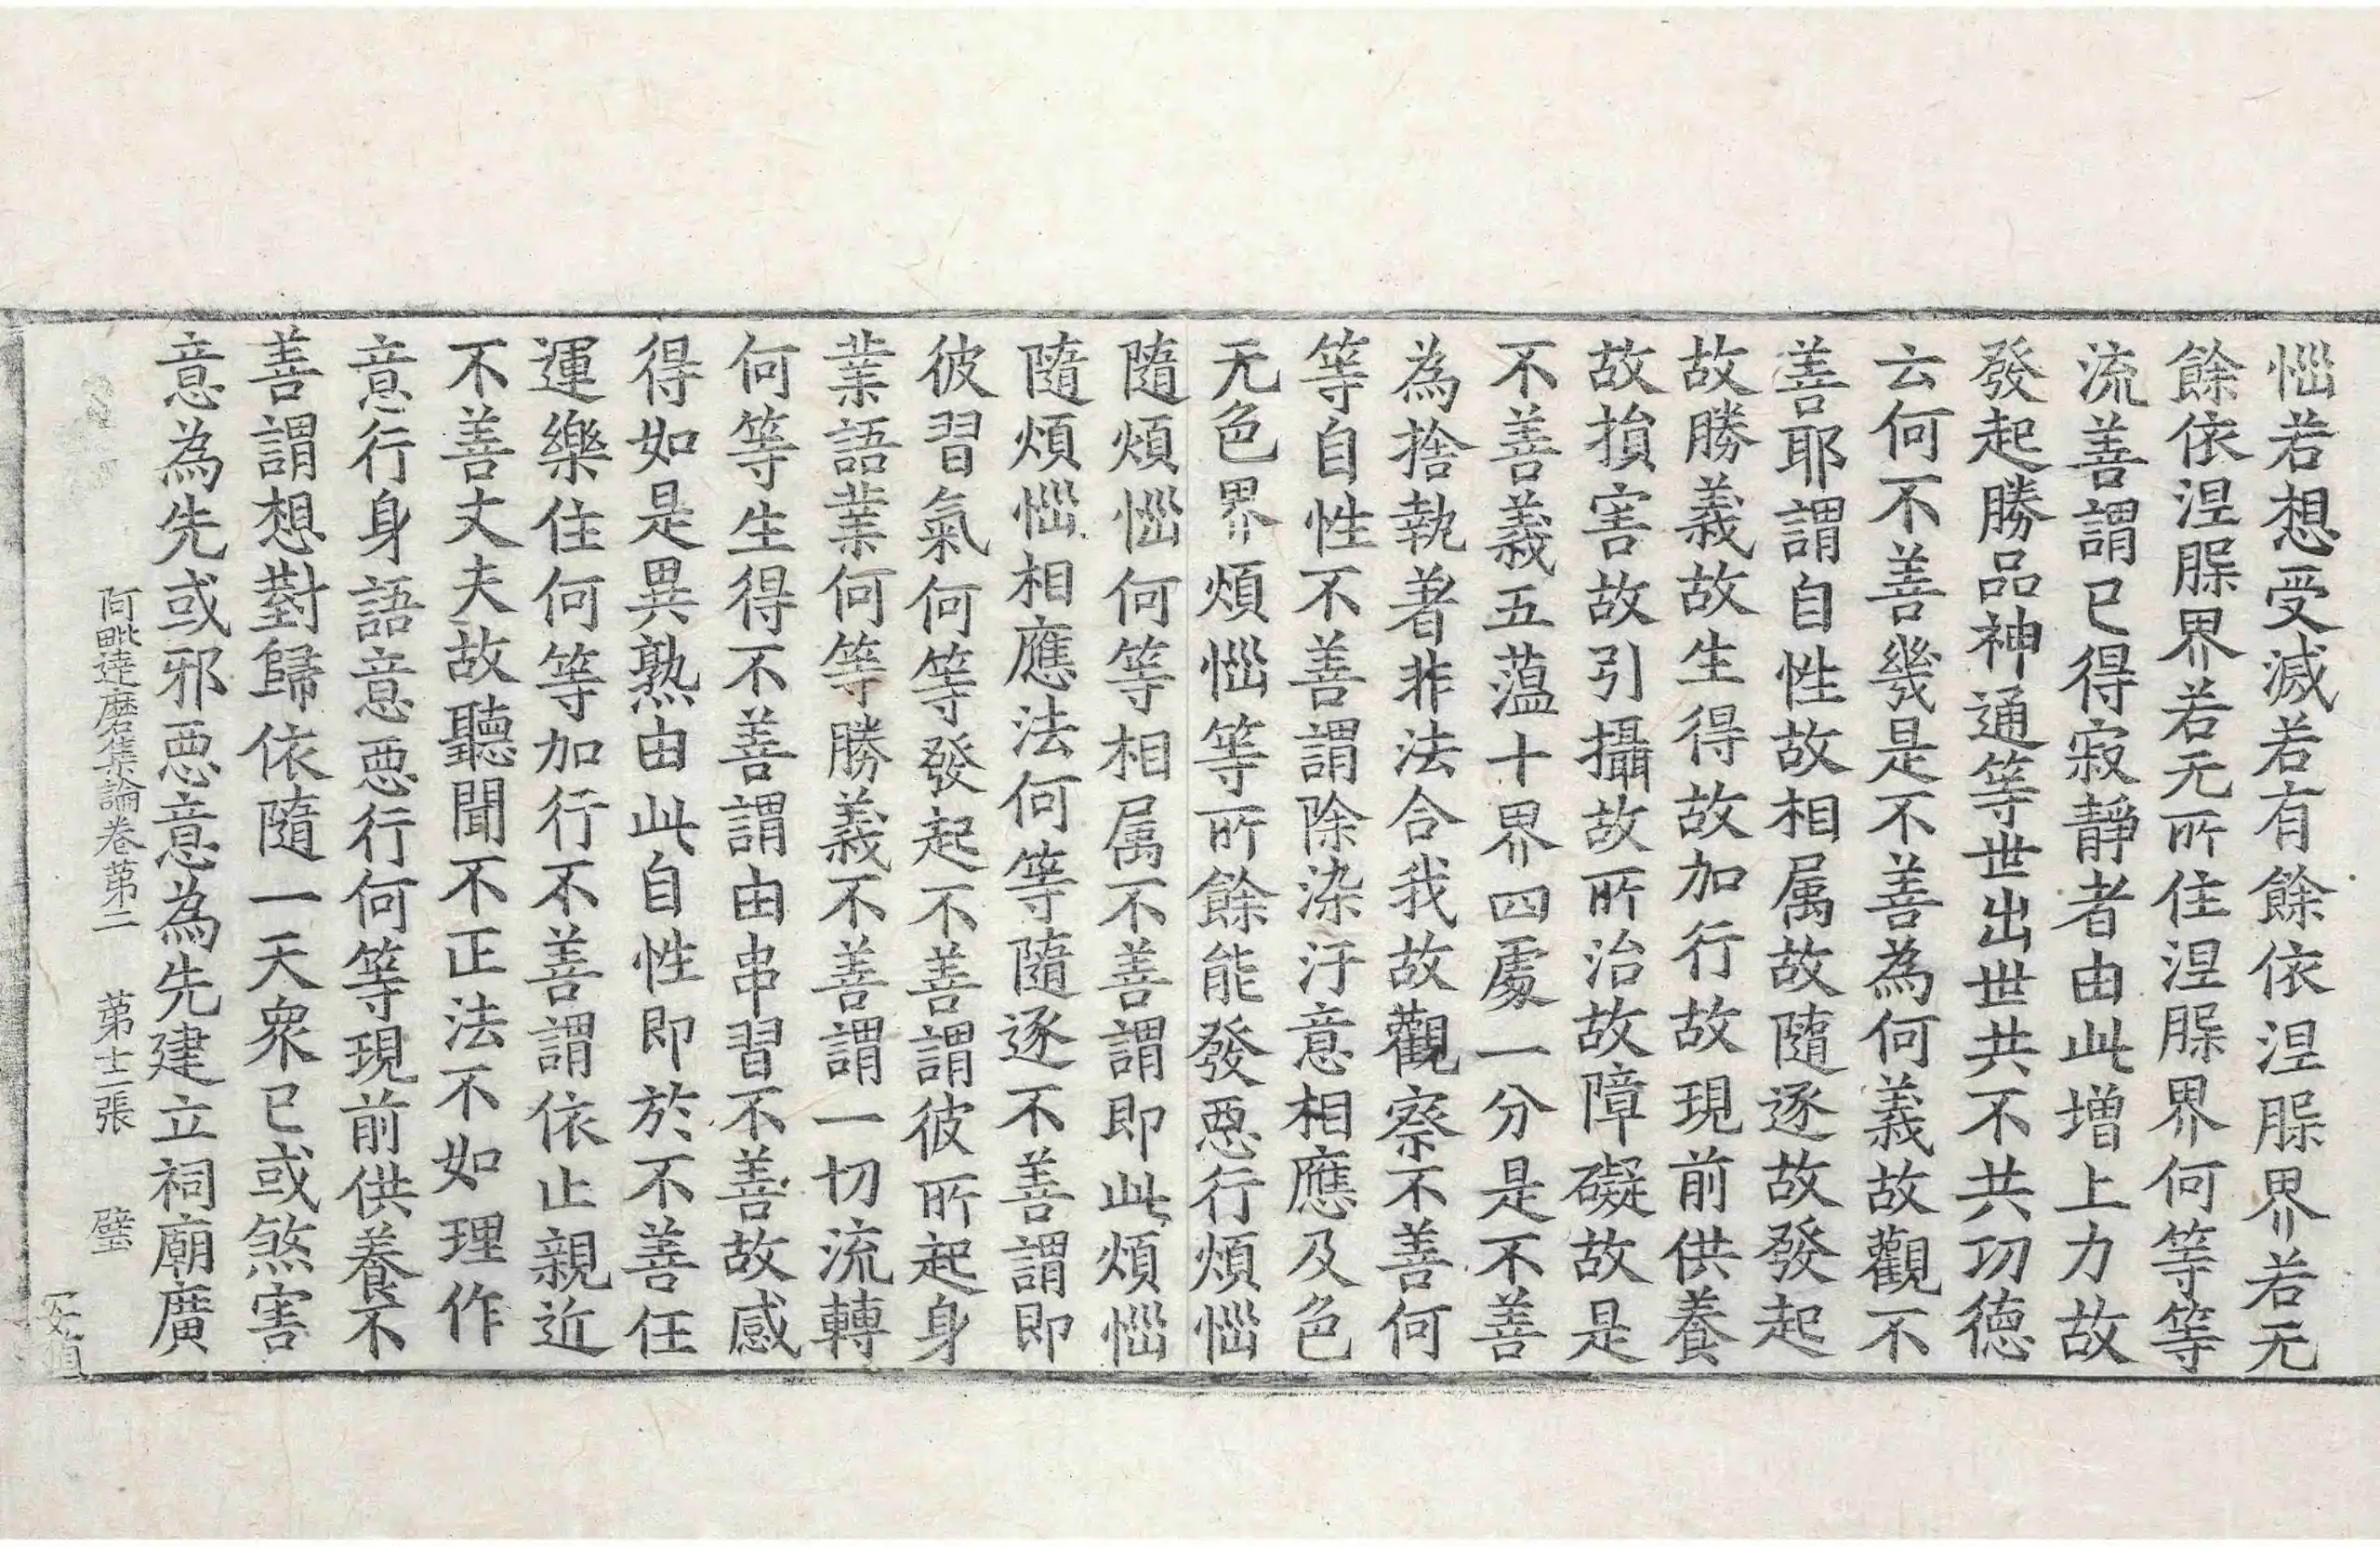 惱若想受滅若有餘依涅槃界若无
餘依涅槃界若无所住涅槃界何等等
流善謂已得寂靜者由此增上力故
發起勝品神通等世出世共不共功德
云何不善幾是不善為何義故觀不
善耶謂自性故相属故隨逐故發起
故勝義故生得故加行故現前供養
故損害故引攝故所治故障礙故是
不善義五薀十界四處一分是不善
為捨執著非法合我故觀察不善何
等自性不善謂除染汙意相應及色
无色界煩惱等所餘能發惡行煩惱
隨煩惱何等相属不善謂即此煩惱
隨煩惱相應法何等隨逐不善謂即
彼習氣何等發起不善謂彼所起身
業語業何等勝義不善謂一切流轉
何等生得不善謂由串習不善故感
得如是異熟由此自性即於不善任
運樂住何等加行不善謂依止親近
不善丈夫故聽聞不正法不如理作
意行身語意惡行何等現前供養不
善謂想對歸依隨一天衆已或煞害
意為先或邪惡意為先建立祠廟廣
阿毗達磨集論卷第二 第十二張 璧